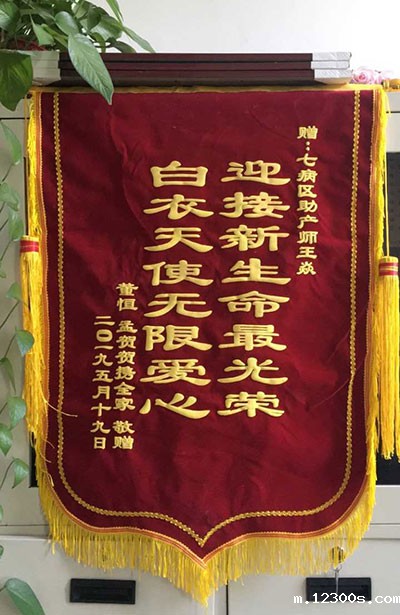 赠：七病区助产师王焱
迎接新生命最光荣
白衣天使无限爱心
董恒 孟贺贺携全家 敬赠
二〇一九五月十九日
m.12300s.com